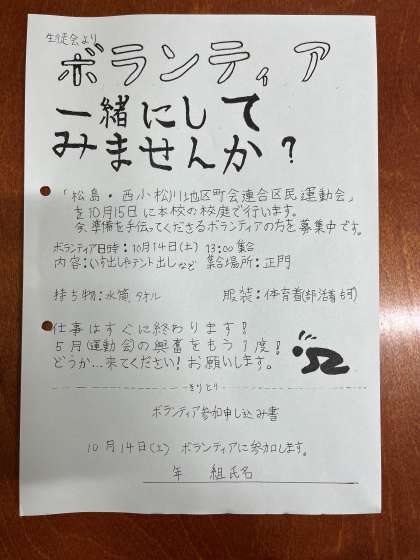 生徒会より
ボランティア
一緒にして
みませんか?
「松島・西小松川地区町会連合区民運動会」
を10月15日に本校の校庭で行います。
今、準備を手伝ってくださるボランティアの方を募集中です。
ボランティア日時:10月14日(土) 13:00集合
内容:いす出しやテント出しなど 集合場所:正門
持ち物:水筒、タオル 服装:体育着(部活着も可)
仕事はすぐに終わります!
5月(運動会)の興奮をもう1度!
どうか…来てください!お願いします。
きりとり
ボランティア参加申し込み書
10月14日(土) ボランティアに参加します。
年 組 氏名